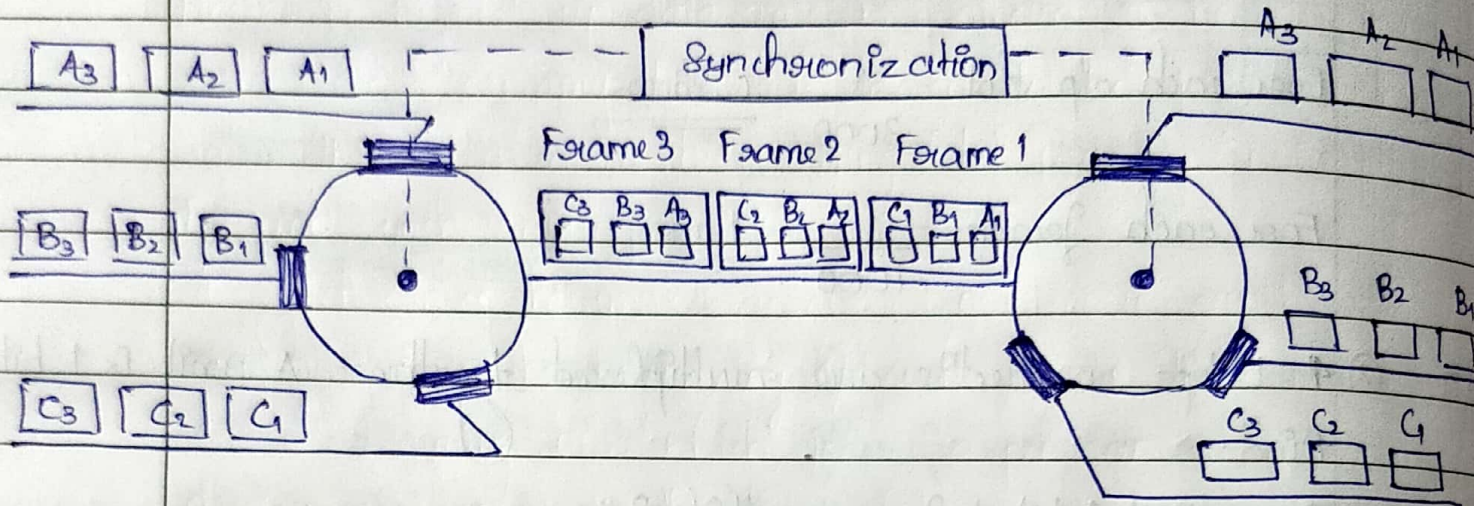 A3 A2 A1
Synchronization
A3 A2 A1
Frame 3 Frame 2 Frame 1
C3 B3 A3 C2 B2 A2 C1 B1 A1
B3 B2 B1
B3 B2 B1
C3 C2 C1
C3 C2 C1